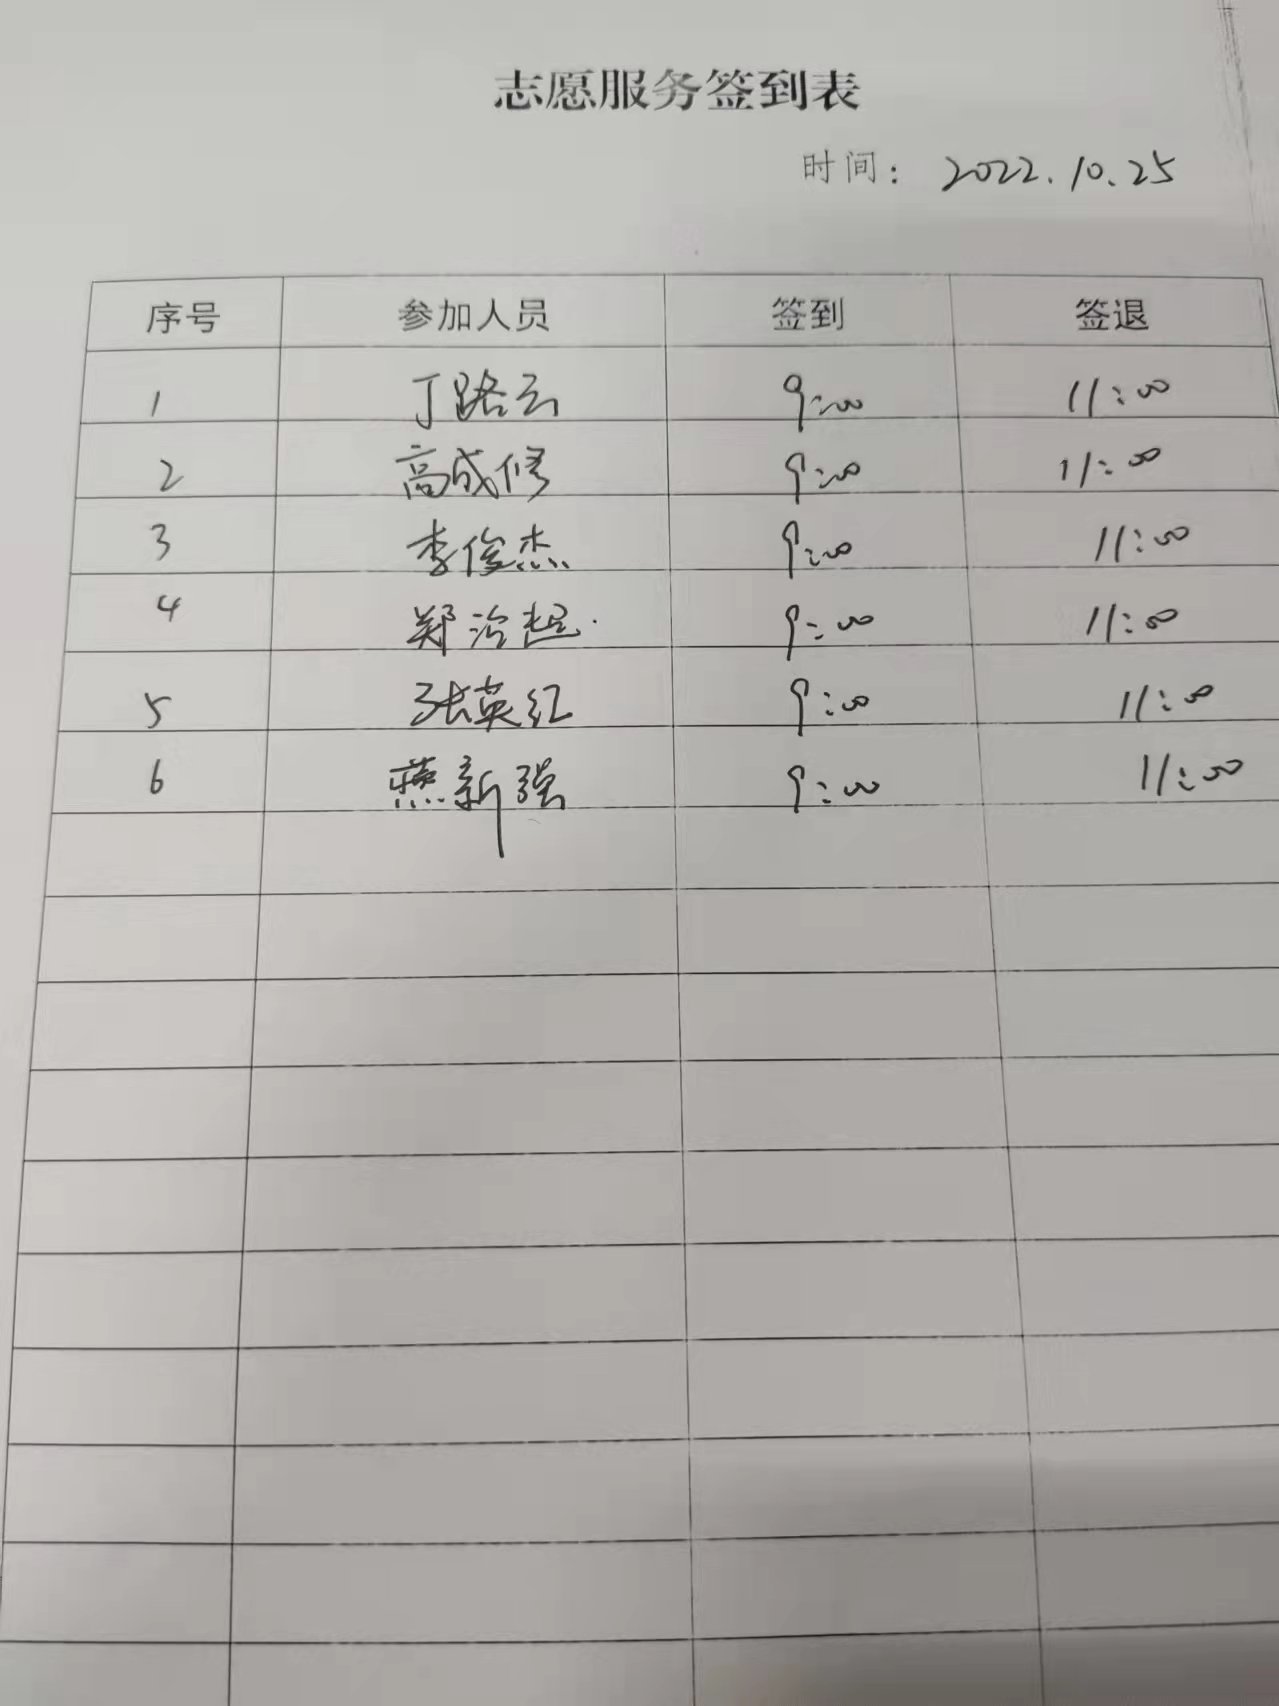 志愿服务签到表
时间: 2022.10.25
序号 参加人员 签到 签退
1 丁路云 9:00 11:00
2 高成修 9:00 11:00
3 李俊杰 9:00 11:00
4 郑治超 9:00 11:00
5 张英红 9:00 11:00
6 燕新强 9:00 11:00